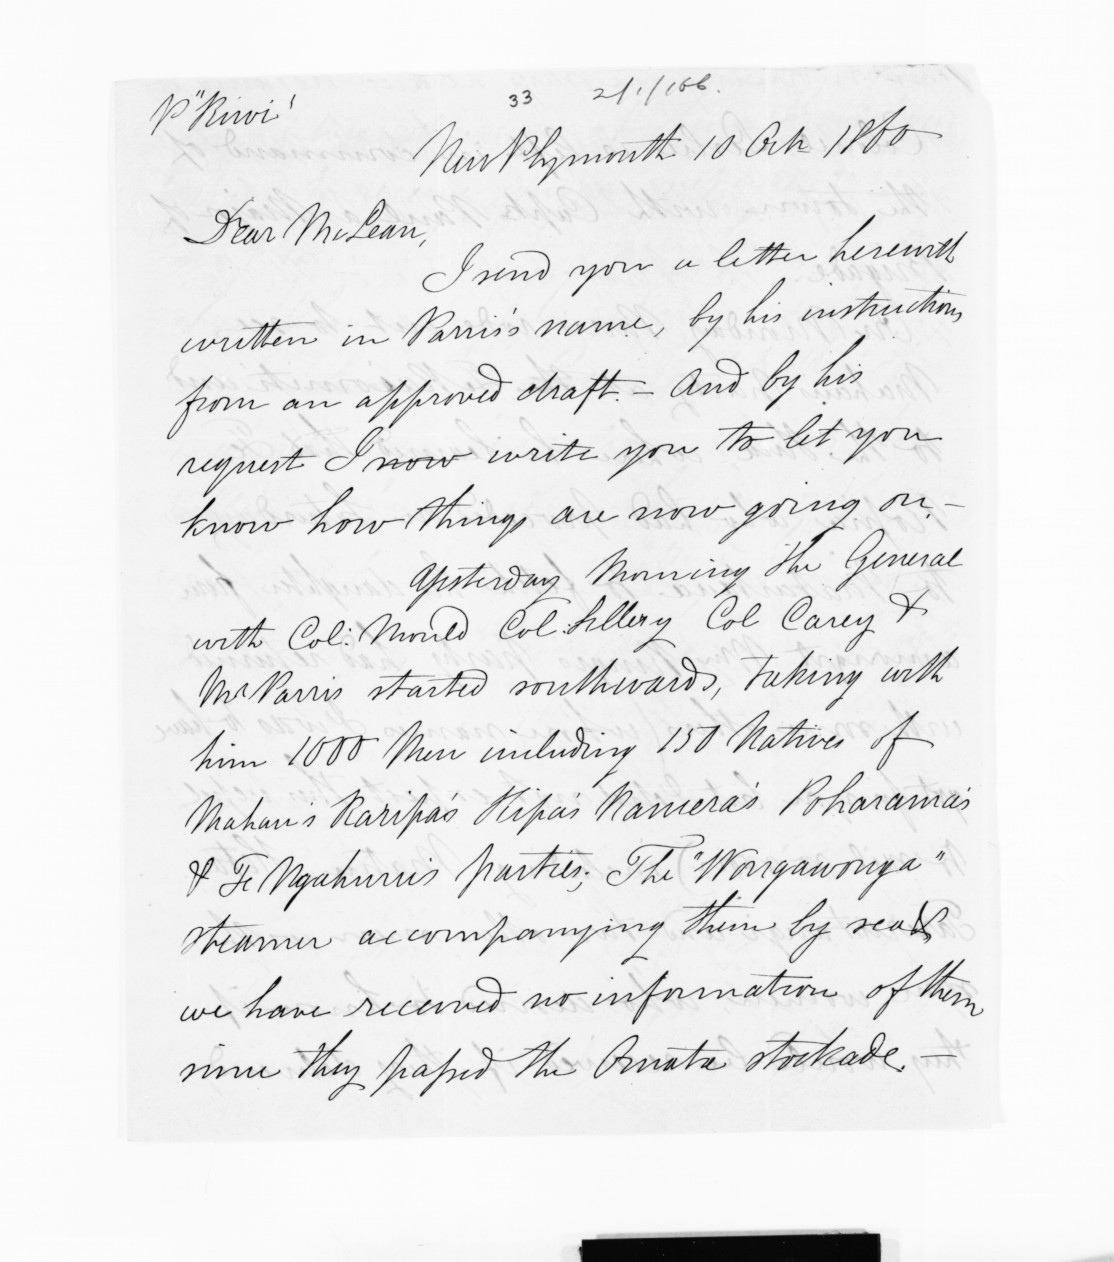 P "Kiwi"
33 2/1/166.
New Plymouth 10 Oct 1860
Dear McLean,
I send you a letter herewith
written in Parris's name, by his instructions
from an approved draft. – And by his
request I now write you to let you
know how things are now going on. –
Yesterday Morning the General
with Col. Mould Col. Sillery Col Carey &
Mr Parris started southwards, taking with
him 1000 Men including 150 Natives of
Mahau's Karipa's Hipa's Ramera's Poharama's
& Te Ngahuru's parties; The "Wongawonga"
steamer accompanying them by sea &
we have received no information of them
since they passed the Omata stockade. –